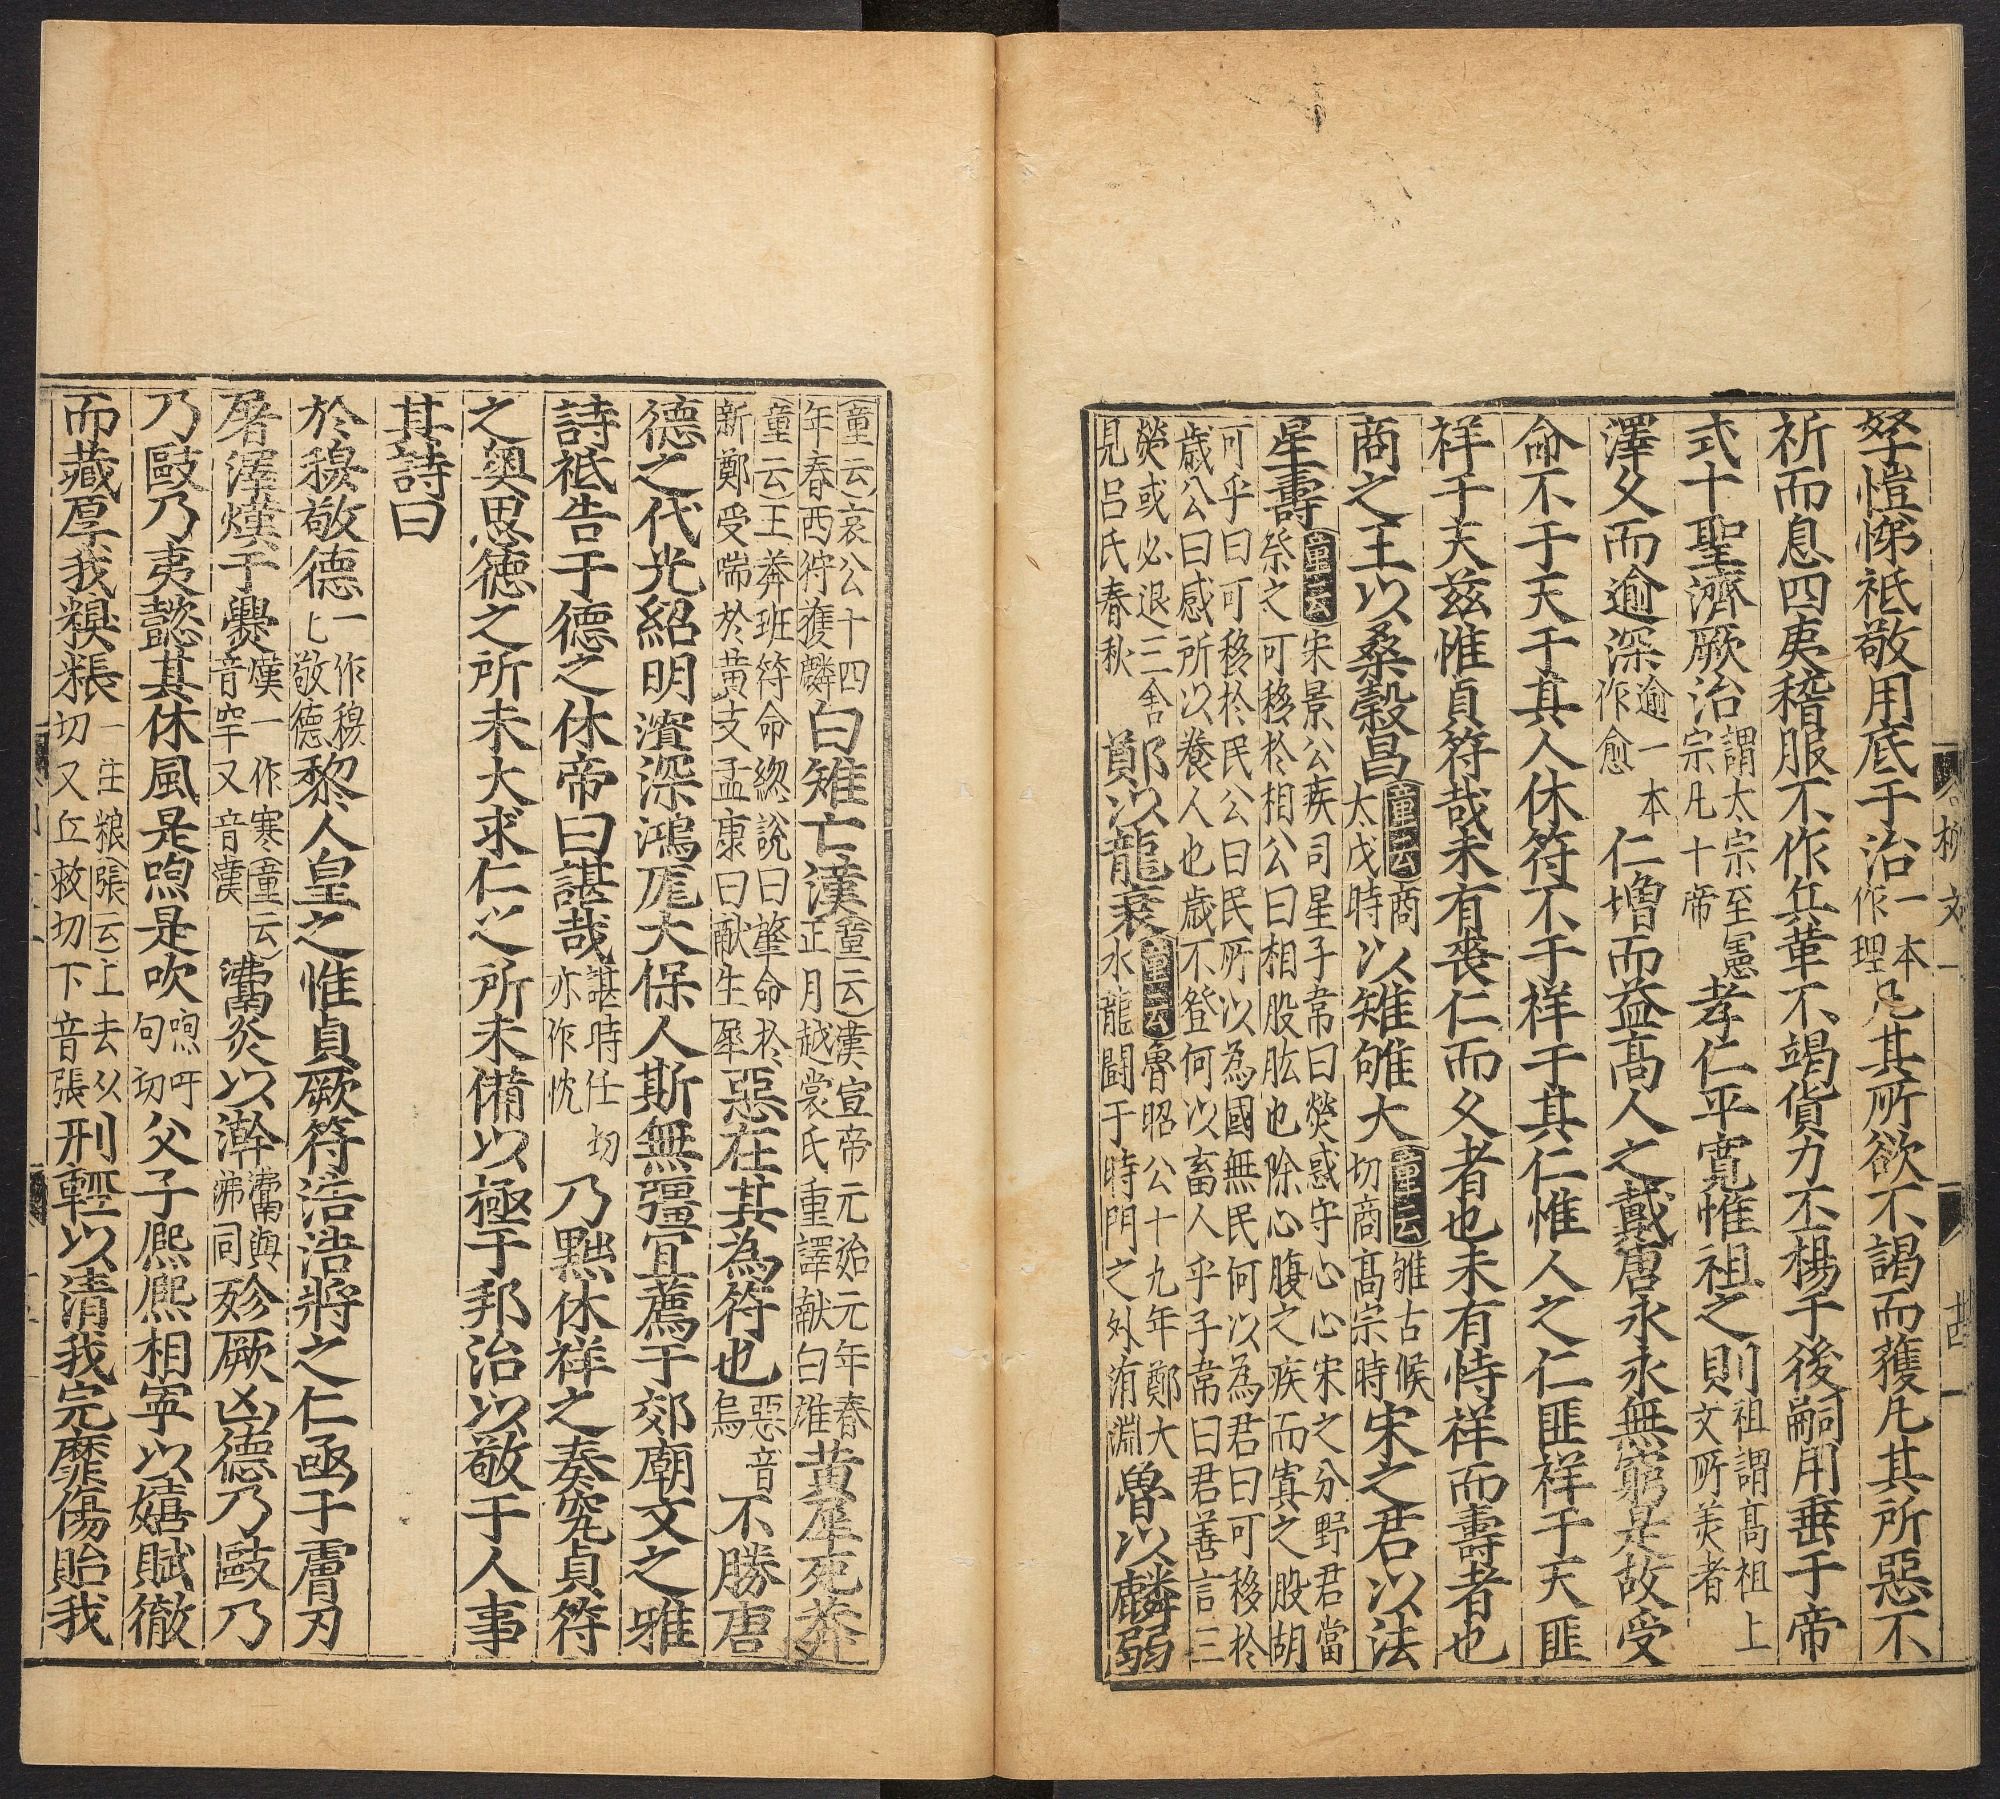 孥愷悌祗敬用底于治一本作理凡其所欲不謁而獲凡其所惡不
祈而息四夷稽服不作兵革不竭貨力丕揚于後嗣用垂于帝
式十聖濟厥治謂太宗至憲宗凡十帝孝仁平寬惟祖之則祖謂高祖上文所羙者
澤久而逾深逾一本作愈仁增而益高人之戴唐永永無窮是故受
命不于天于其人休符不于祥于其仁惟人之仁匪祥于天匪
祥于天兹惟貞符哉未有喪仁而久者也未有恃祥而壽者也
商之王以桑穀昌童云商太戊時以雉雊大童云雊古候切商高宗時宋之君以法
星壽童云宋景公疾司星子韋曰熒惑守心心宋之分野君當祭之可移於相公曰相股肱也除心腹之疾而寘之股胡
可乎曰可移於民公曰民所以為國無民何以為君曰可移於歲公曰感所以養人也歲不登何以畜人乎子韋曰君善言三
熒或必退三舍見吕氏春秋鄭以龍衰童云魯昭公十九年鄭大水龍鬬于時門之外洧淵魯以麟弱
童云哀公十四年春西狩獲麟白雉亡漢童云漢宣帝元始元年春正月越裳氏重譯献白雉黄犀死莽
童云王莽班符命緫說曰肇命於新鄭受喘於黄支孟康曰献生犀惡在其為符也惡音烏不勝唐
德之代光紹明濬深鴻厖大保人斯無彊宜薦于郊廟文之雅
詩祗告于德之休帝曰諶哉諶時任切亦作忱乃黜休祥之奏究貞符
之奥思德之所未大求仁之所未備以極于邦治以敬于人事
其詩曰
於穆敬德一作穆匕敬德黎人皇之惟貞厥符浩浩將之仁函于膚刃
屠澤熯于㸑熯一作寒童云音罕又音漢灊炎以澣灊與沸同殄厥凶德乃敺乃
乃敺乃夷懿其休風是喣是吹喣吁句切父子熈熈相寜以嬉賦徹
而藏厚我糗粻一注粮張云上去从切又丘救切下音張刑輕以清我完靡傷貽我